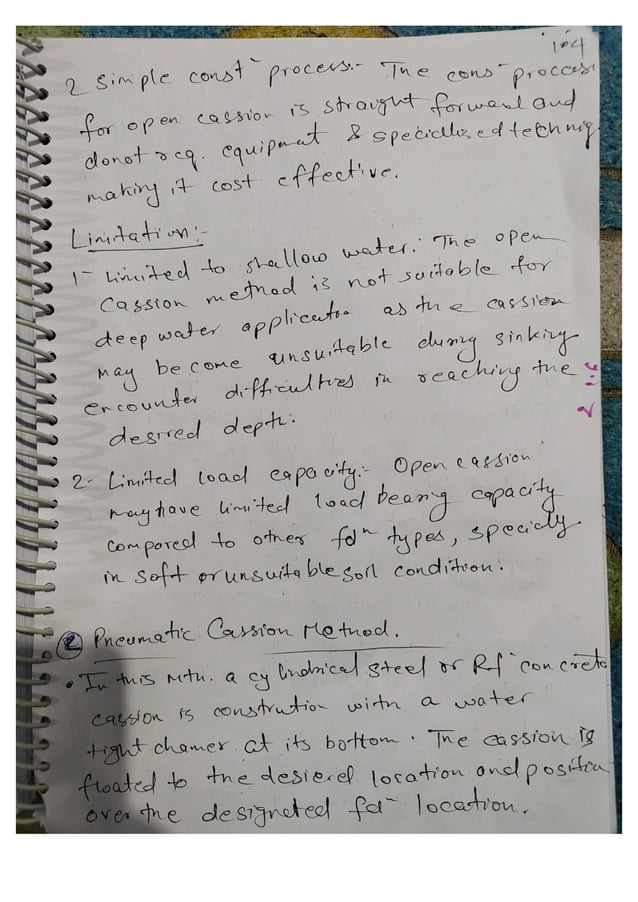 104
2 simple const process:- The cons process
for open cassion is straight forward and
donot req. equipment & specialized techniq
making it cost effective.
Limitation:-
1- Limited to shallow water: The open
cassion method is not suitable for
deep water application as the cassion
may become unsuitable during sinking
encounter difficulties in reaching the
desired depth.
2- Limited load capacity:- Open cassion
may have limited load bearing capacity
compared to other fdn types, specialy
in soft or unsuitable soil condition.
2 Pneumatic Cassion Method.
• In this Mth. a cylindrical steel or Rf concrete
cassion is constrution with a water
tight chamer at its bottom. The cassion is
floated to the desiered location and position
over the designeted fd location.